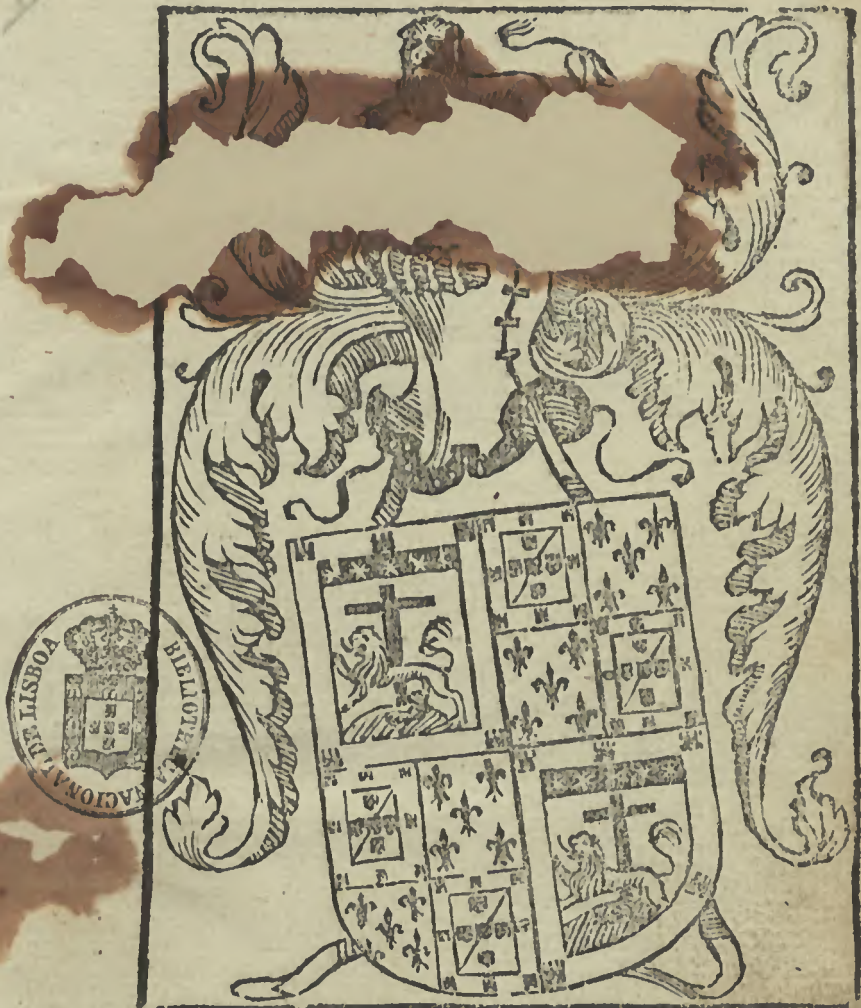 BIBLIOTHECA NACIONAL DE LISBOA